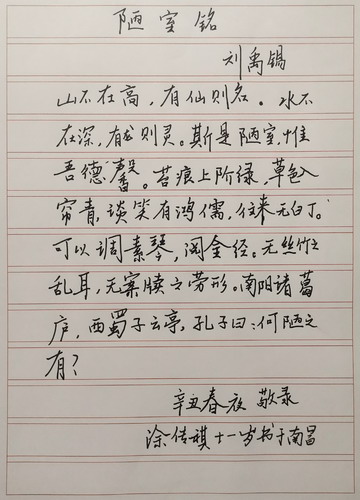 陋室铭
刘禹锡
山不在高，有仙则名。水不
在深，有龙则灵。斯是陋室，惟
吾德馨。苔痕上阶绿，草色入
帘青，谈笑有鸿儒，往来无白丁。
可以调素琴，阅金经。无丝竹之
乱耳，无案牍之劳形。南阳诸葛
庐，西蜀子云亭，孔子曰：何陋之
有？
辛丑春夜 敬录
涂传祺十一岁书于南昌